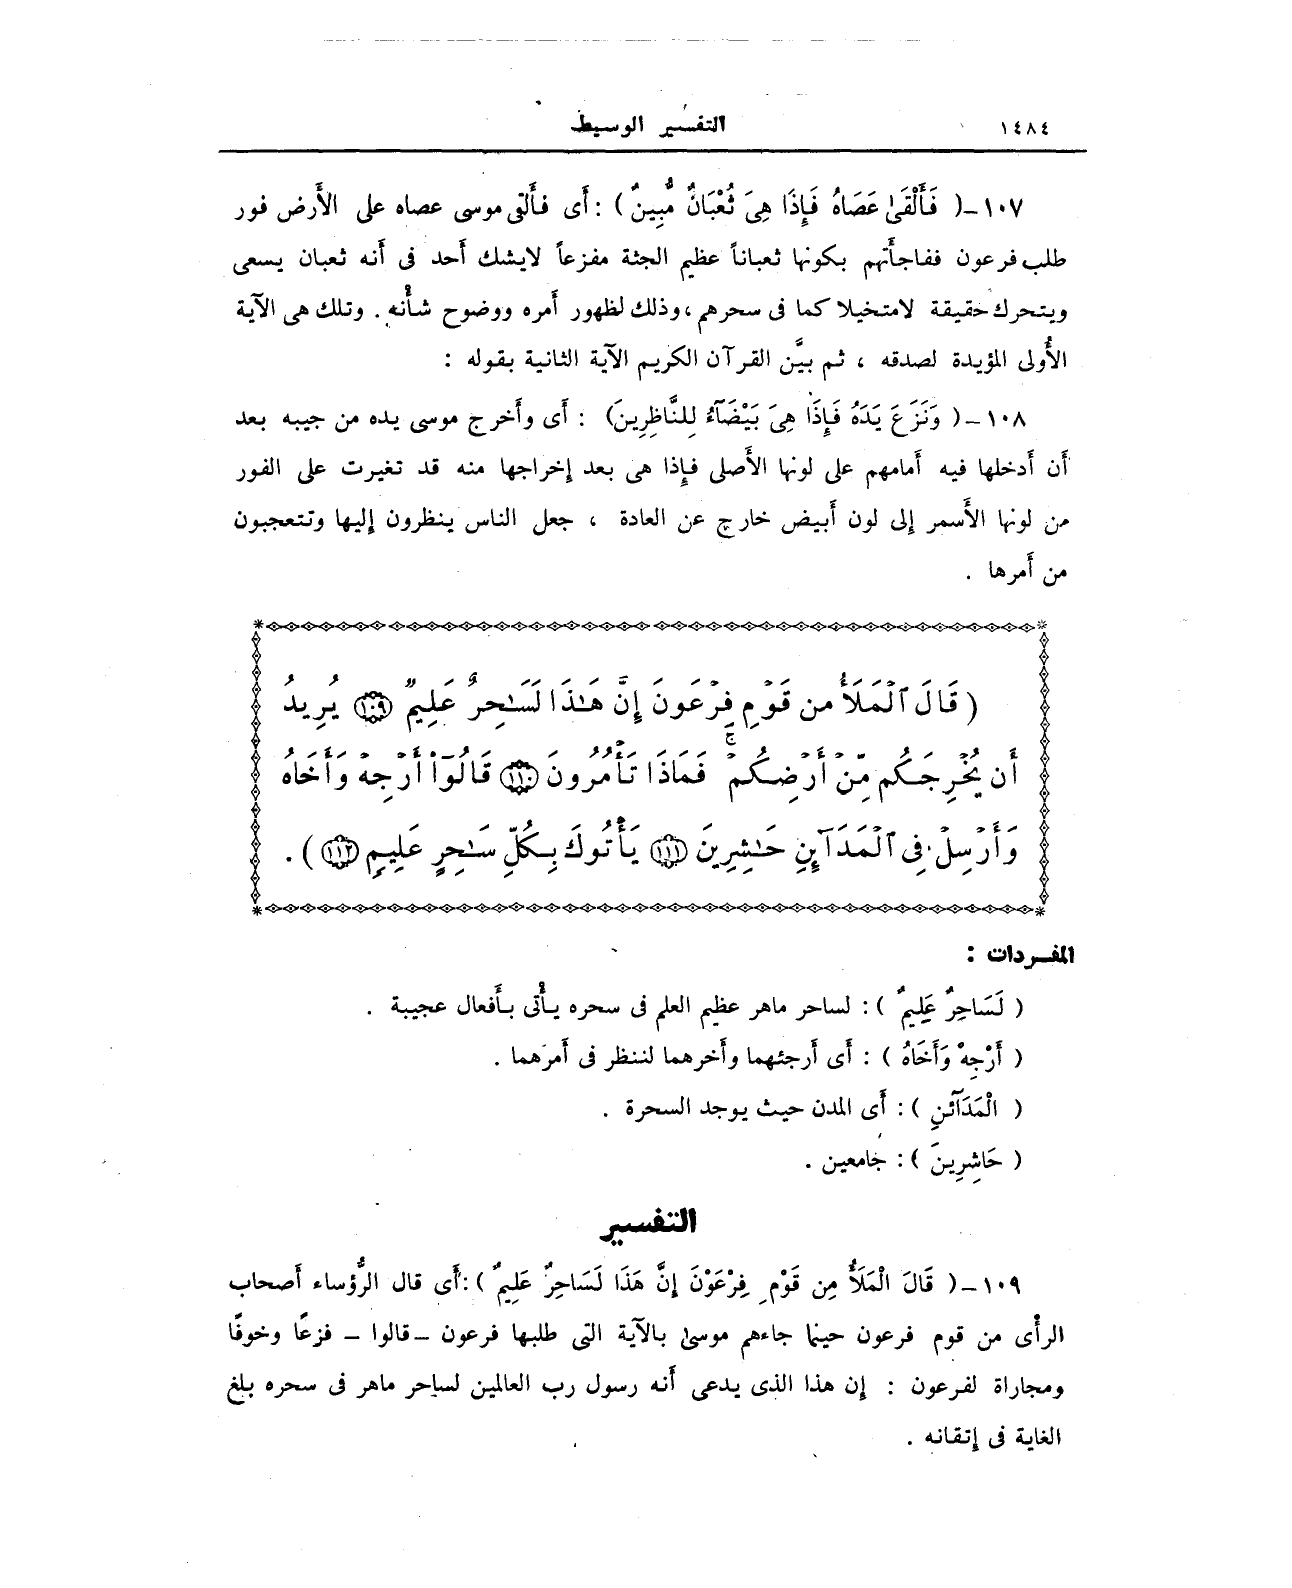 ١٤٨٤ التفسير الوسيط
١٠٧ – ( فَأَلْقَىٰ عَصَاهُ فَإِذَا هِىَ ثُعْبَانٌ مُّبِينٌ ) : أَى فأَلقى موسى عصاه على الأَرض فور
طلب فرعون ففاجأَتهم بكونها ثعباناً عظيم الجثة مفزعاً لايشك أَحد فى أَنه ثعبان يسعى
ويتحرك حقيقة لامتخيلا كما فى سحرهم ، وذلك لظهور أَمره ووضوح شأْنه . وتلك هى الآية
الأُولى المؤيدة لصدقه ، ثم بيَّن القرآن الكريم الآية الثانية بقوله :
١٠٨ – ( وَنَزَعَ يَدَهُ فَإِذَا هِىَ بَيْضَآءُ لِلنَّاظِرِينَ) : أَى وأَخرج موسى يده من جيبه بعد
أَن أَدخلها فيه أَمامهم على لونها الأَصلى فإِذا هى بعد إِخراجها منه قد تغيرت على الفور
من لونها الأَسمر إِلى لون أَبيض خارج عن العادة ، جعل الناس ينظرون إِليها وتتعجبون
من أَمرها .
( قَالَ ٱلْمَلَأُ من قَوْمِ فِرْعَوْنَ إِنَّ هَـٰذَا لَسَـٰحِرٌ عَلِيمٌ ١٠٩ يُرِيدُ
أَن يُخْرِجَكُم مِّنْ أَرْضِكُمْ ۖ فَمَاذَا تَأْمُرُونَ ١١٠ قَالُوٓا۟ أَرْجِهْ وَأَخَاهُ
وَأَرْسِلْ فِى ٱلْمَدَآئِنِ حَـٰشِرِينَ ١١١ يَأْتُوكَ بِكُلِّ سَـٰحِرٍ عَلِيمٍ ١١٢ ) .
المفـردات :
( لَسَاحِرٌ عَلِيمٌ ) : لساحر ماهر عظيم العلم فى سحره يأْتى بأَفعال عجيبة .
( أَرْجِهْ وَأَخَاهُ ) : أَى أَرجئهما وأَخرهما لننظر فى أَمرهما .
( الْمَدَآئنِ ) : أَى المدن حيث يوجد السحرة .
( حَاشِرِينَ ) : جامعين .
التفسير
١٠٩ – ( قَالَ الْمَلَأُ مِن قَوْمِ فِرْعَوْنَ إِنَّ هَذَا لَسَاحِرٌ عَلِيمٌ ) : أَى قال الرُّؤساء أَصحاب
الرأْى من قوم فرعون حينما جاءهم موسىٰ بالآية التى طلبها فرعون – قالوا – فزعًا وخوفًا
ومجاراة لفرعون : إن هذا الذى يدعى أَنه رسول رب العالمين لساحر ماهر فى سحره بلغ
الغاية فى إِتقانه .